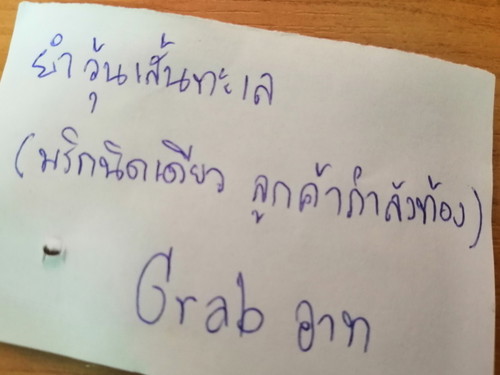 ยำวุ้นเส้นทะเล
(พริกนิดเดียว ลูกค้ากำลังท้อง)
Grab อาท